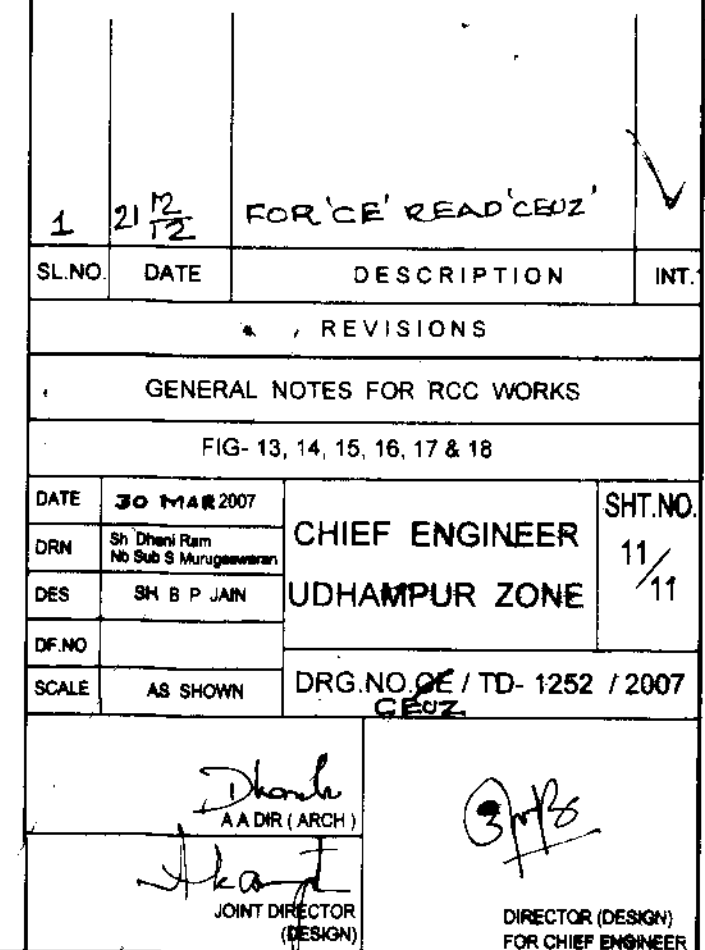 1 21 12/12 FOR 'CE' READ 'CEUZ'
SL.NO. DATE DESCRIPTION INT.
REVISIONS
GENERAL NOTES FOR RCC WORKS
FIG- 13, 14, 15, 16, 17 & 18
DATE 30 MAR 2007
DRN Sh Dhani Ram
Nb Sub S Murugeswaran
DES SH B P JAIN
DF.NO
SCALE AS SHOWN
CHIEF ENGINEER
UDHAMPUR ZONE
SHT.NO.
11/11
DRG.NO.CE / TD- 1252 / 2007
CEUZ
A A DIR ( ARCH )
JOINT DIRECTOR
(DESIGN)
DIRECTOR (DESIGN)
FOR CHIEF ENGINEER